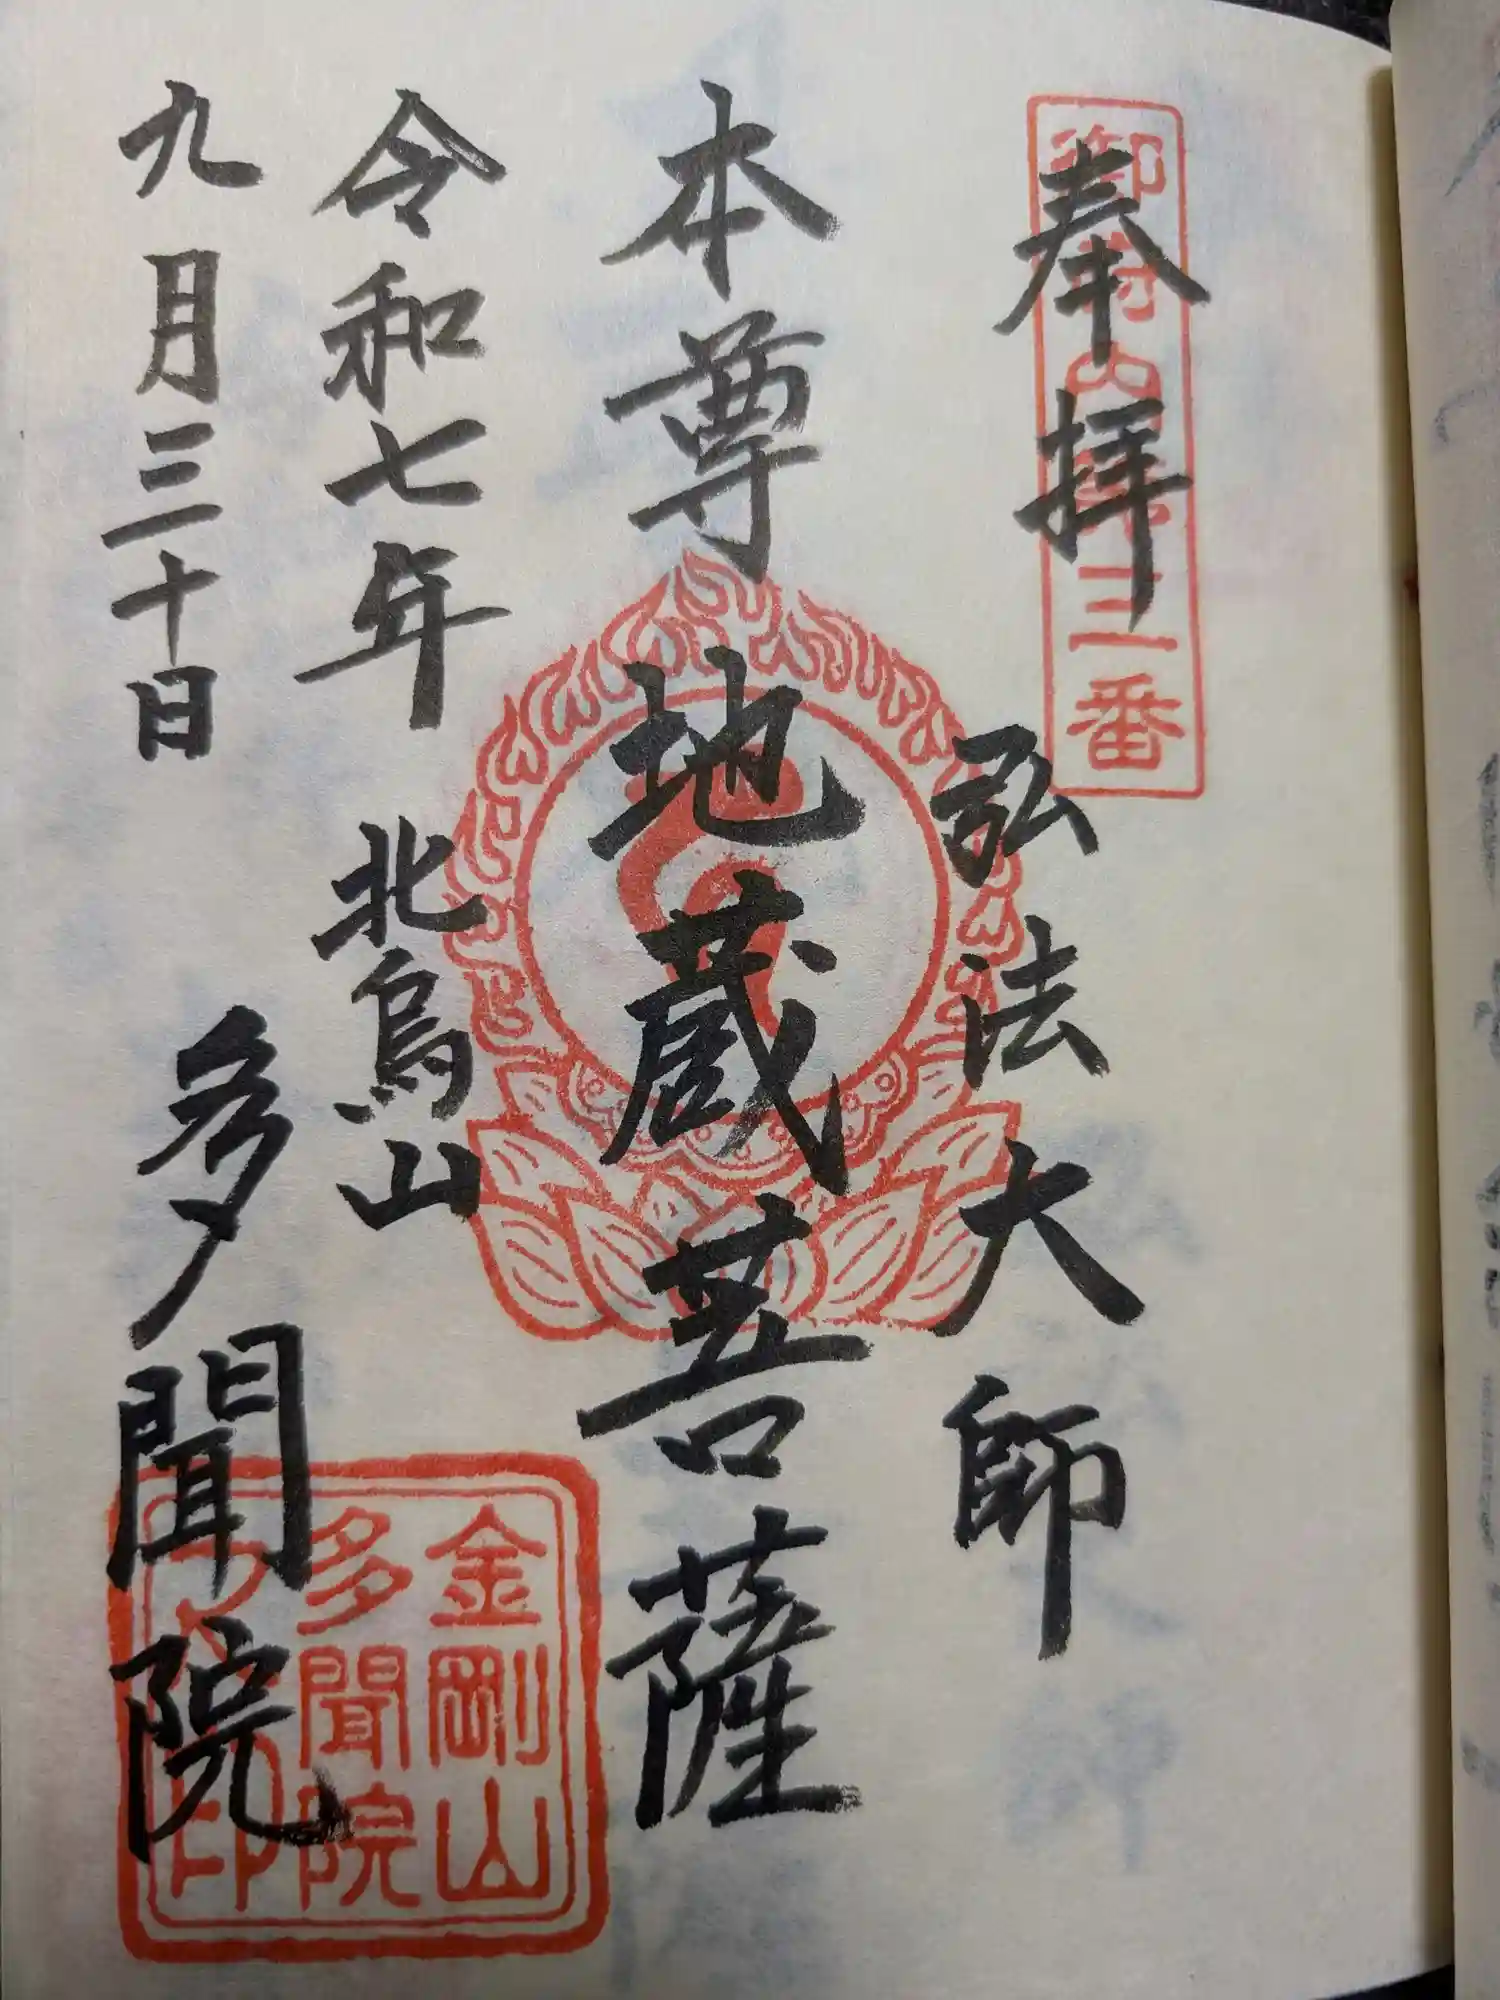 奉拝
御府内第三番
弘法大師
本尊地蔵菩薩
令和七年
九月三十日
北烏山
多聞院
金剛山
多聞院
印